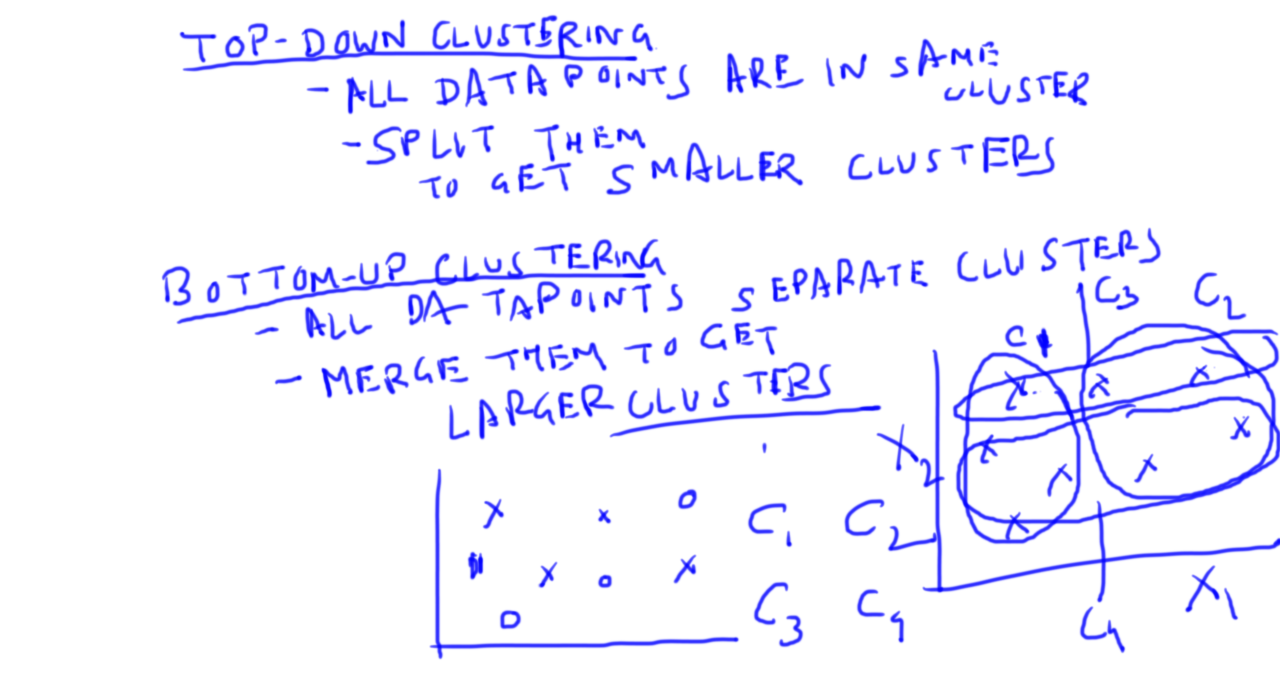 TOP-DOWN CLUSTERING
- ALL DATA POINTS ARE IN SAME
CLUSTER
- SPLIT THEM
TO GET SMALLER CLUSTERS
BOTTOM-UP CLUSTERING
- ALL DATAPOINTS SEPARATE CLUSTERS
- MERGE THEM TO GET
LARGER CLUSTERS
C1 C3 C2
X2
C1 C2
C3 C4
C4 X1